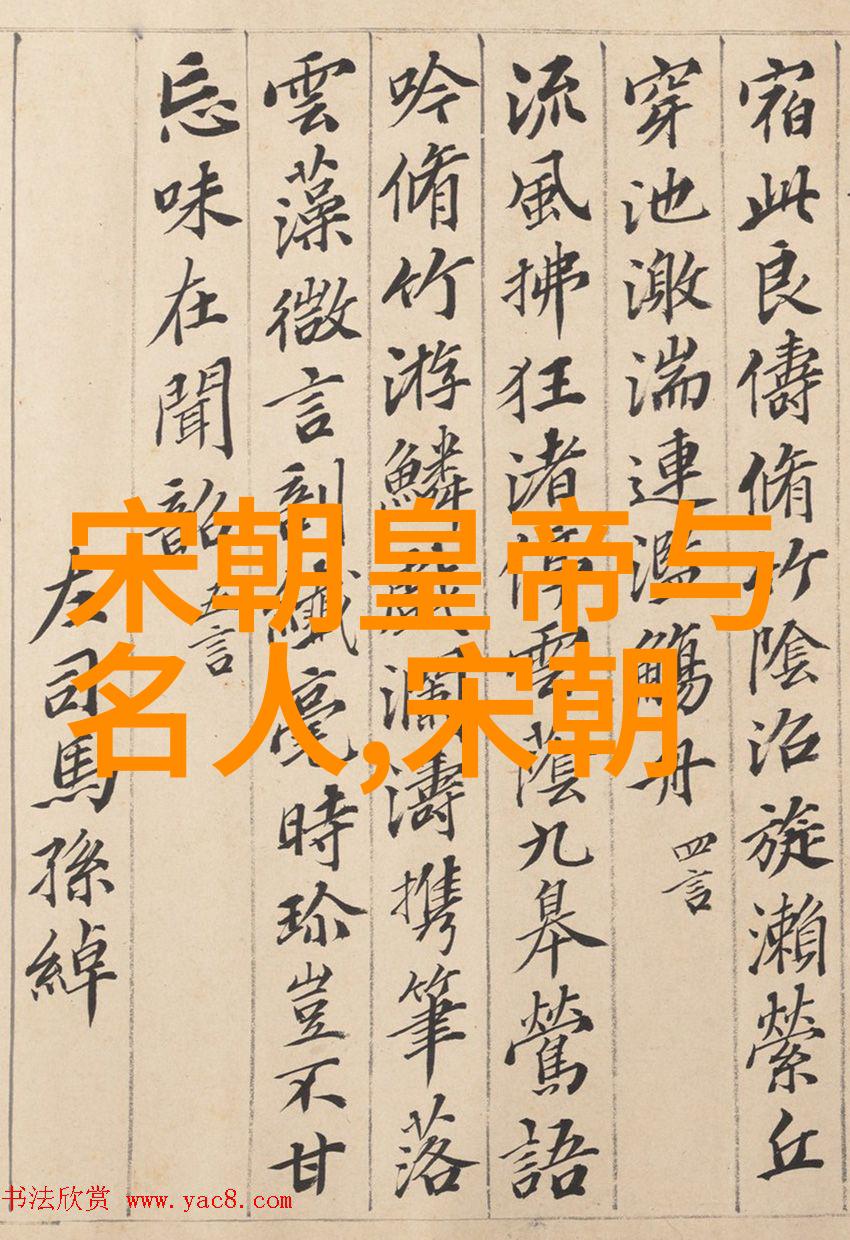 宿此良儔脩竹陰沼旋瀨縈丘
穿池激湍連濫觴舟 四言
流風拂狂渚停雲蔭九皋鶯語
吟脩竹游鱗戲瀾濤携筆落
雲藻微言剖纖毫時珍豈不甘
忘味在聞韶 五言
左司馬孫綽
宋朝皇帝与
名人,宋朝
书法欣赏 www.yac8.com